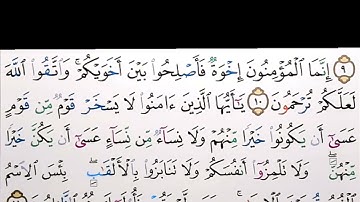 ٩ إِنَّمَا ٱلْمُؤْمِنُونَ إِخْوَةٌ فَأَصْلِحُوا۟ بَيْنَ أَخَوَيْكُمْ ۚ وَٱتَّقُوا۟ ٱللَّهَ
لَعَلَّكُمْ تُرْحَمُونَ ١٠ يَٰٓأَيُّهَا ٱلَّذِينَ ءَامَنُوا۟ لَا يَسْخَرْ قَوْمٌ مِّن قَوْمٍ
عَسَىٰٓ أَن يَكُونُوا۟ خَيْرًا مِّنْهُمْ وَلَا نِسَآءٌ مِّن نِّسَآءٍ عَسَىٰٓ أَن يَكُنَّ خَيْرًا
مِّنْهُنَّ ۖ وَلَا تَلْمِزُوٓا۟ أَنفُسَكُمْ وَلَا تَنَابَزُوا۟ بِٱلْأَلْقَٰبِ ۖ بِئْسَ ٱلِٱسْمُ